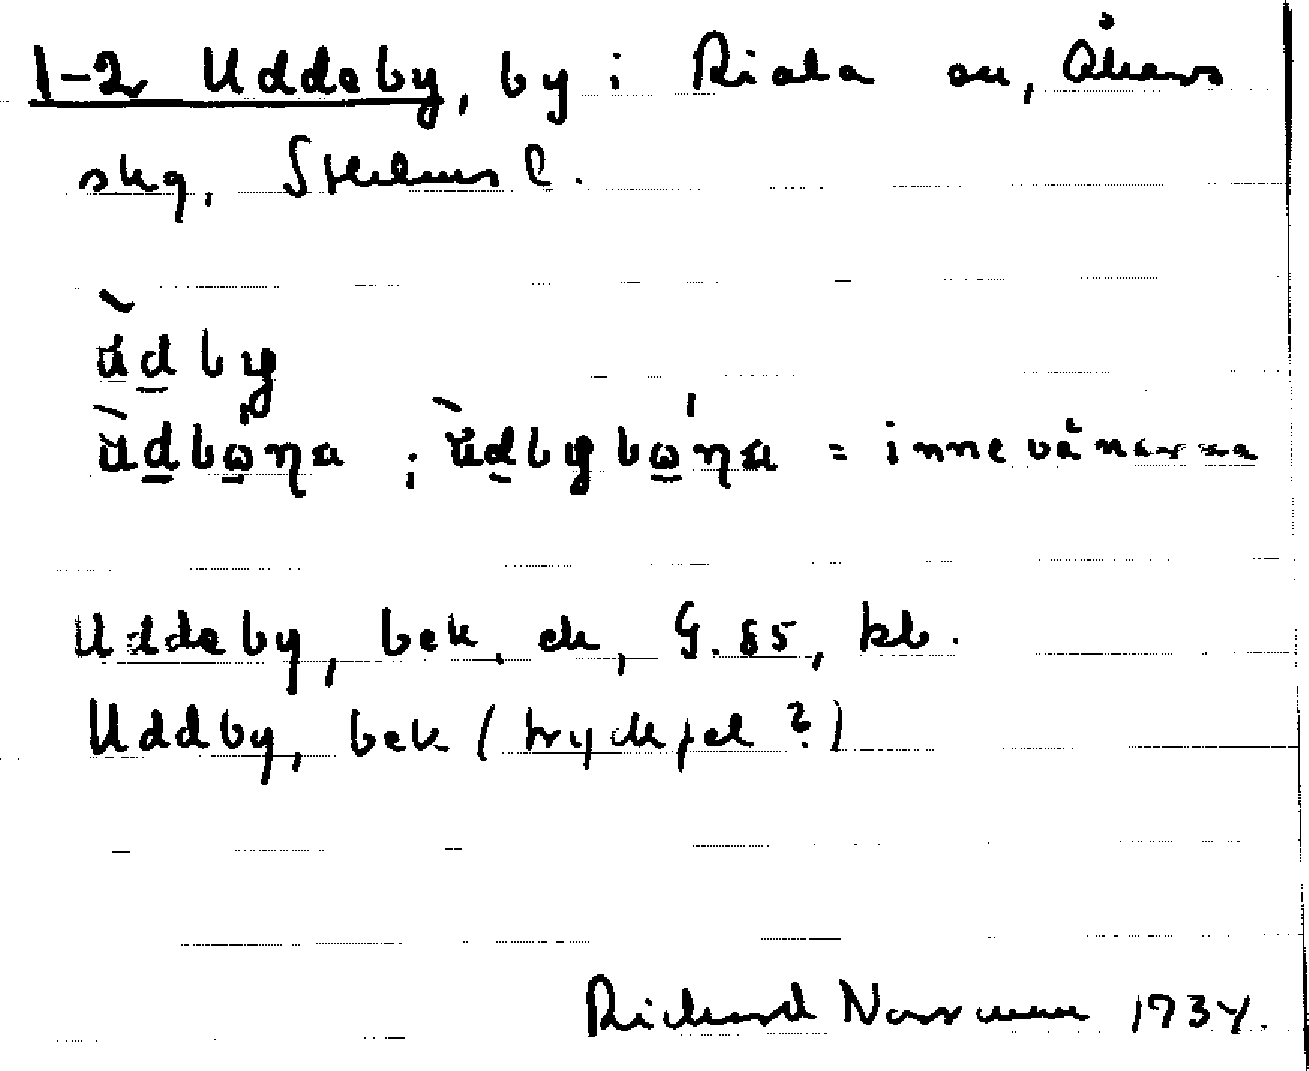 1-2 Uddeby, by i Riala sn, Åkers
skg, Sthlms l.
ùdby
ùdbω̇ŋa ; ùdbybω̇ŋa = innevånarna
Uddeby, bek, ek, G. 85, kb.
Uddby, bek (tryckfel?)
Richard Norrman 1934.